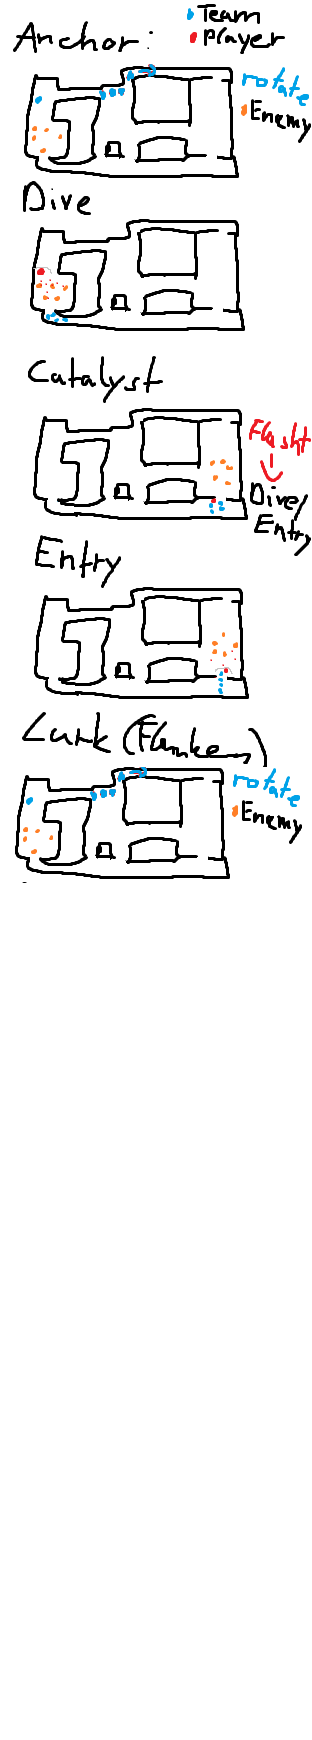 Team
Player
Anchor:
rotate
Enemy
Dive
Catalyst
Flasht
Dive/
Entry
Entry
Lurk (Flanke
rotate
Enemy